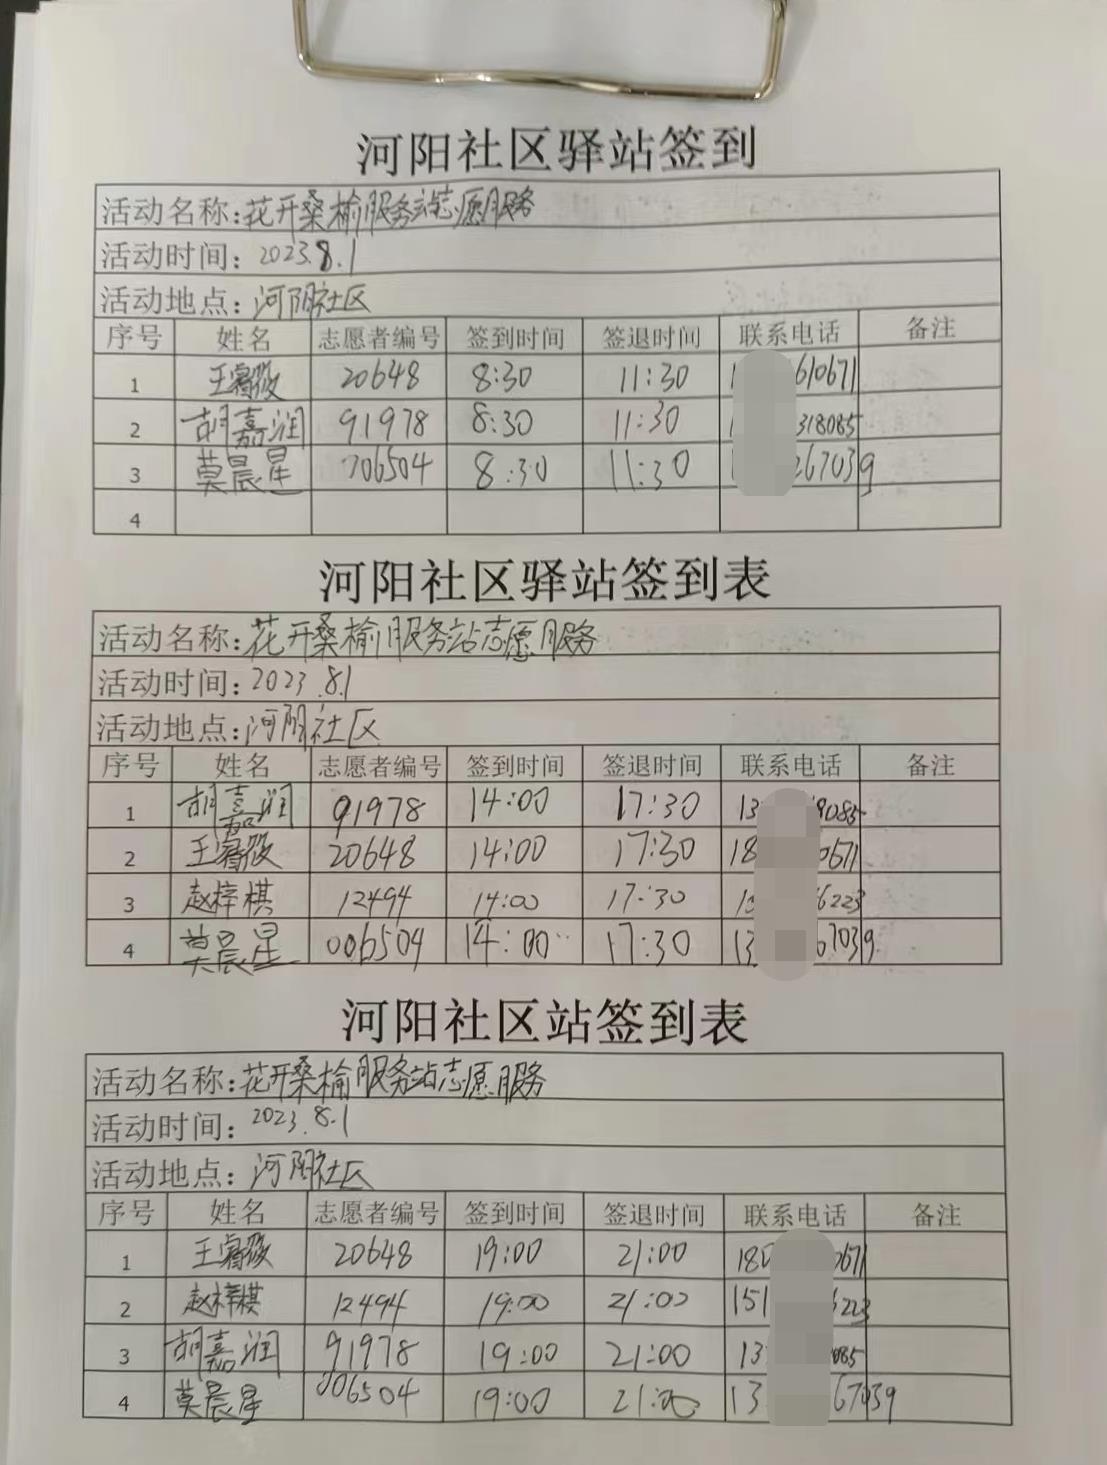 河阳社区驿站签到
活动名称:花开桑榆服务站志愿服务
活动时间: 2023.8.1
活动地点: 河阳社区
序号 姓名 志愿者编号 签到时间 签退时间 联系电话 备注
1 王睿筱 20648 8:30 11:30 1 610671
2 胡嘉润 91978 8:30 11:30 1 318085
3 莫晨星 006504 8:30 11:30 267039
4
河阳社区驿站签到表
活动名称:花开桑榆服务站志愿服务
活动时间: 2023.8.1
活动地点:河阳社区
序号 姓名 志愿者编号 签到时间 签退时间 联系电话 备注
1 胡嘉润 91978 14:00 17:30 13 8085
2 王睿筱 20648 14:00 17:30 18 0671
3 赵梓棋 12494 14:00 17:30 15 6223
4 莫晨星 006504 14:00 17:30 13 67039
河阳社区站签到表
活动名称:花开桑榆服务站志愿服务
活动时间: 2023.8.1
活动地点: 河阳社区
序号 姓名 志愿者编号 签到时间 签退时间 联系电话 备注
1 王睿筱 20648 19:00 21:00 180 0671
2 赵梓棋 12494 19:00 21:00 151 6223
3 胡嘉润 91978 19:00 21:00 13 085
4 莫晨星 006504 19:00 21:00 13 67039